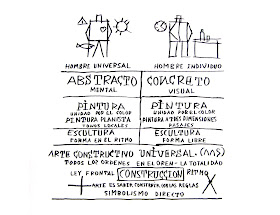 HOMBRE UNIVERSAL
HOMBRE INDIVIDUO
ABSTRACTO
MENTAL
CONCRETO
VISUAL
PINTURA
UNIDAD POR EL COLOR
PINTURA PLANISTA
TONOS LOCALES
PINTURA
UNIDAD POR EL COLOR
PINTURA A TRES DIMENSIONES
PAISAJES
ESCULTURA
FORMA EN EL RITMO
ESCULTURA
FORMA LIBRE
ARTE CONSTRUCTIVO UNIVERSAL.
TODOS LOS ORDENES EN EL ORDEN - LA TOTALIDAD
LEY FRONTAL CONSTRUCCION RITMO
ARTE ES SABER CONSTRUIR CON LAS REGLAS
SIMBOLISMO DIRECTO